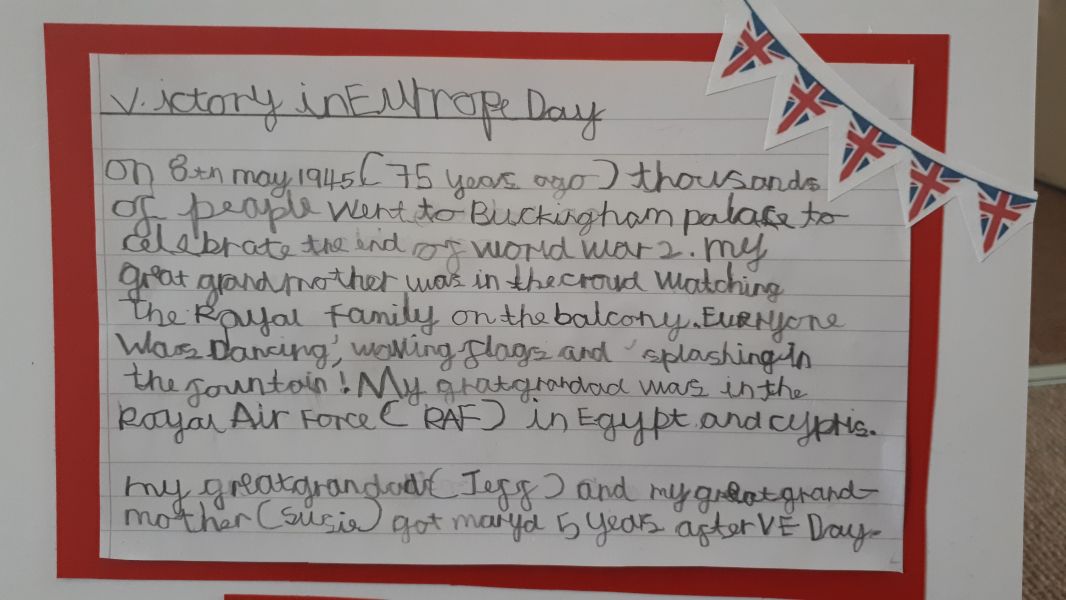 Victory in Europe Day
on 8th may 1945 (75 years ago) thousands
of people went to Buckingham palace to
celebrate the end of world war 2. my
great grandmother was in the crowd watching
the Royal Family on the balcony. Everyone
was Dancing, waving flags and splashing in
the fountain! My gratgrandad was in the
Royal Air Force (RAF) in Egypt and cypris.
my greatgrandad (Jeff) and my great grand-
mother (Susie) got maryd 5 years after VE Day.